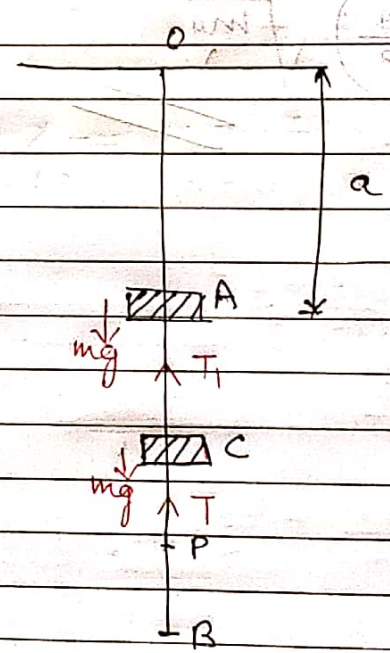 O
a
A
mg
T₁
C
mg
T
P
B